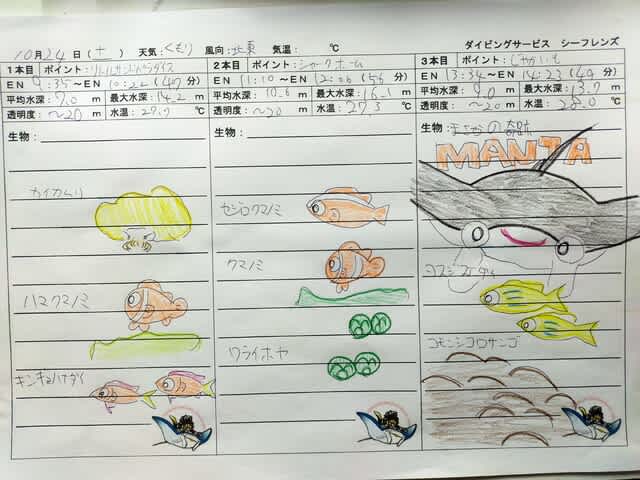 10月24日(土) 天気:くもり 風向:北東 気温: ℃
ダイビングサービス シーフレンズ
1本目 ポイント:
EN 9:35～EN 10:22(47分)
平均水深:7.0 m 最大水深:14.2 m
透明度:～20 m 水温:27.9℃
生物:
カイカムリ
ハマクマノミ
キンギョハナダイ
2本目 ポイント:シャークホーム
EN 11:10～EN 12:06(56分)
平均水深:10.6 m 最大水深:16.1 m
透明度:～20 m 水温:27.3℃
セジロクマノミ
クマノミ
ワライボヤ
3本目 ポイント:じゃがいも
EN 13:34～EN 14:23(49分)
平均水深:9.0 m 最大水深:13.7 m
透明度:～20 m 水温:28.0℃
生物:まさかの奇跡
MANTA
ヨスジフエダイ
コモンシコロサンゴ